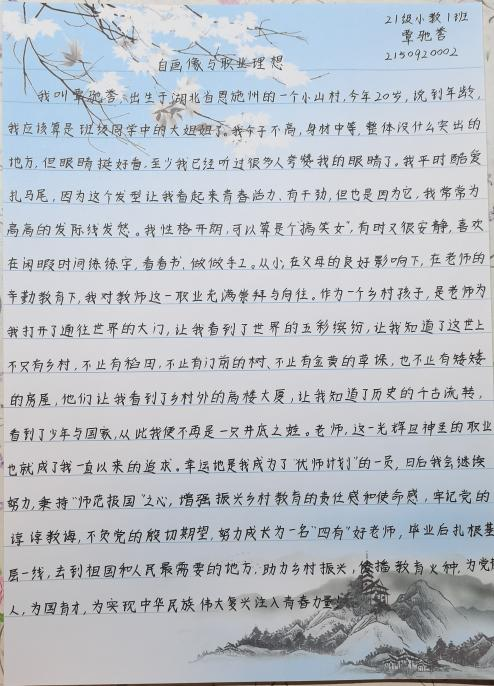 21级小教1班
覃驰誉
2150920002
自画像与职业理想
我叫覃驰誉,出生于湖北省恩施州的一个小山村,今年20岁,说到年龄,
我应该算是班级同学中的大姐姐了。我个子不高,身材中等,整体没什么突出的
地方,但眼睛挺好看,至少我已经听过很多人夸赞我的眼睛了。我平时酷爱
扎马尾,因为这个发型让我看起来青春活力、有干劲,但也是因为它,我常常为
高高的发际线发愁。我性格开朗,可以算是个“搞笑女”,有时又很安静,喜欢
在闲暇时间练练字,看看书,做做手工。从小,在父母的良好影响下,在老师的
辛勤教育下,我对教师这一职业充满崇拜与向往。作为一个乡村孩子,是老师为
我打开了通往世界的大门,让我看到了世界的五彩缤纷,让我知道了这世上
不只有乡村,不止有稻田,不止有门前的树、不止有金黄的草垛,也不止有矮矮
的房屋,他们让我看到了乡村外的高楼大厦,让我知道了历史的千古流转,
看到了少年与国家,从此我便不再是一只井底之蛙。老师,这一光辉且神圣的职业
也就成了我一直以来的追求。幸运地是我成为了“优师计划”的一员,日后我会继续
努力,秉持“师范报国”之心,增强振兴乡村教育的责任感和使命感,牢记党的
谆谆教诲,不负党的殷切期望,努力成长为一名“四有”好老师,毕业后扎根基
层一线,去到祖国和人民最需要的地方,助力乡村振兴,传播教育火种,为党育
人,为国育才,为实现中华民族伟大复兴注入青春力量!